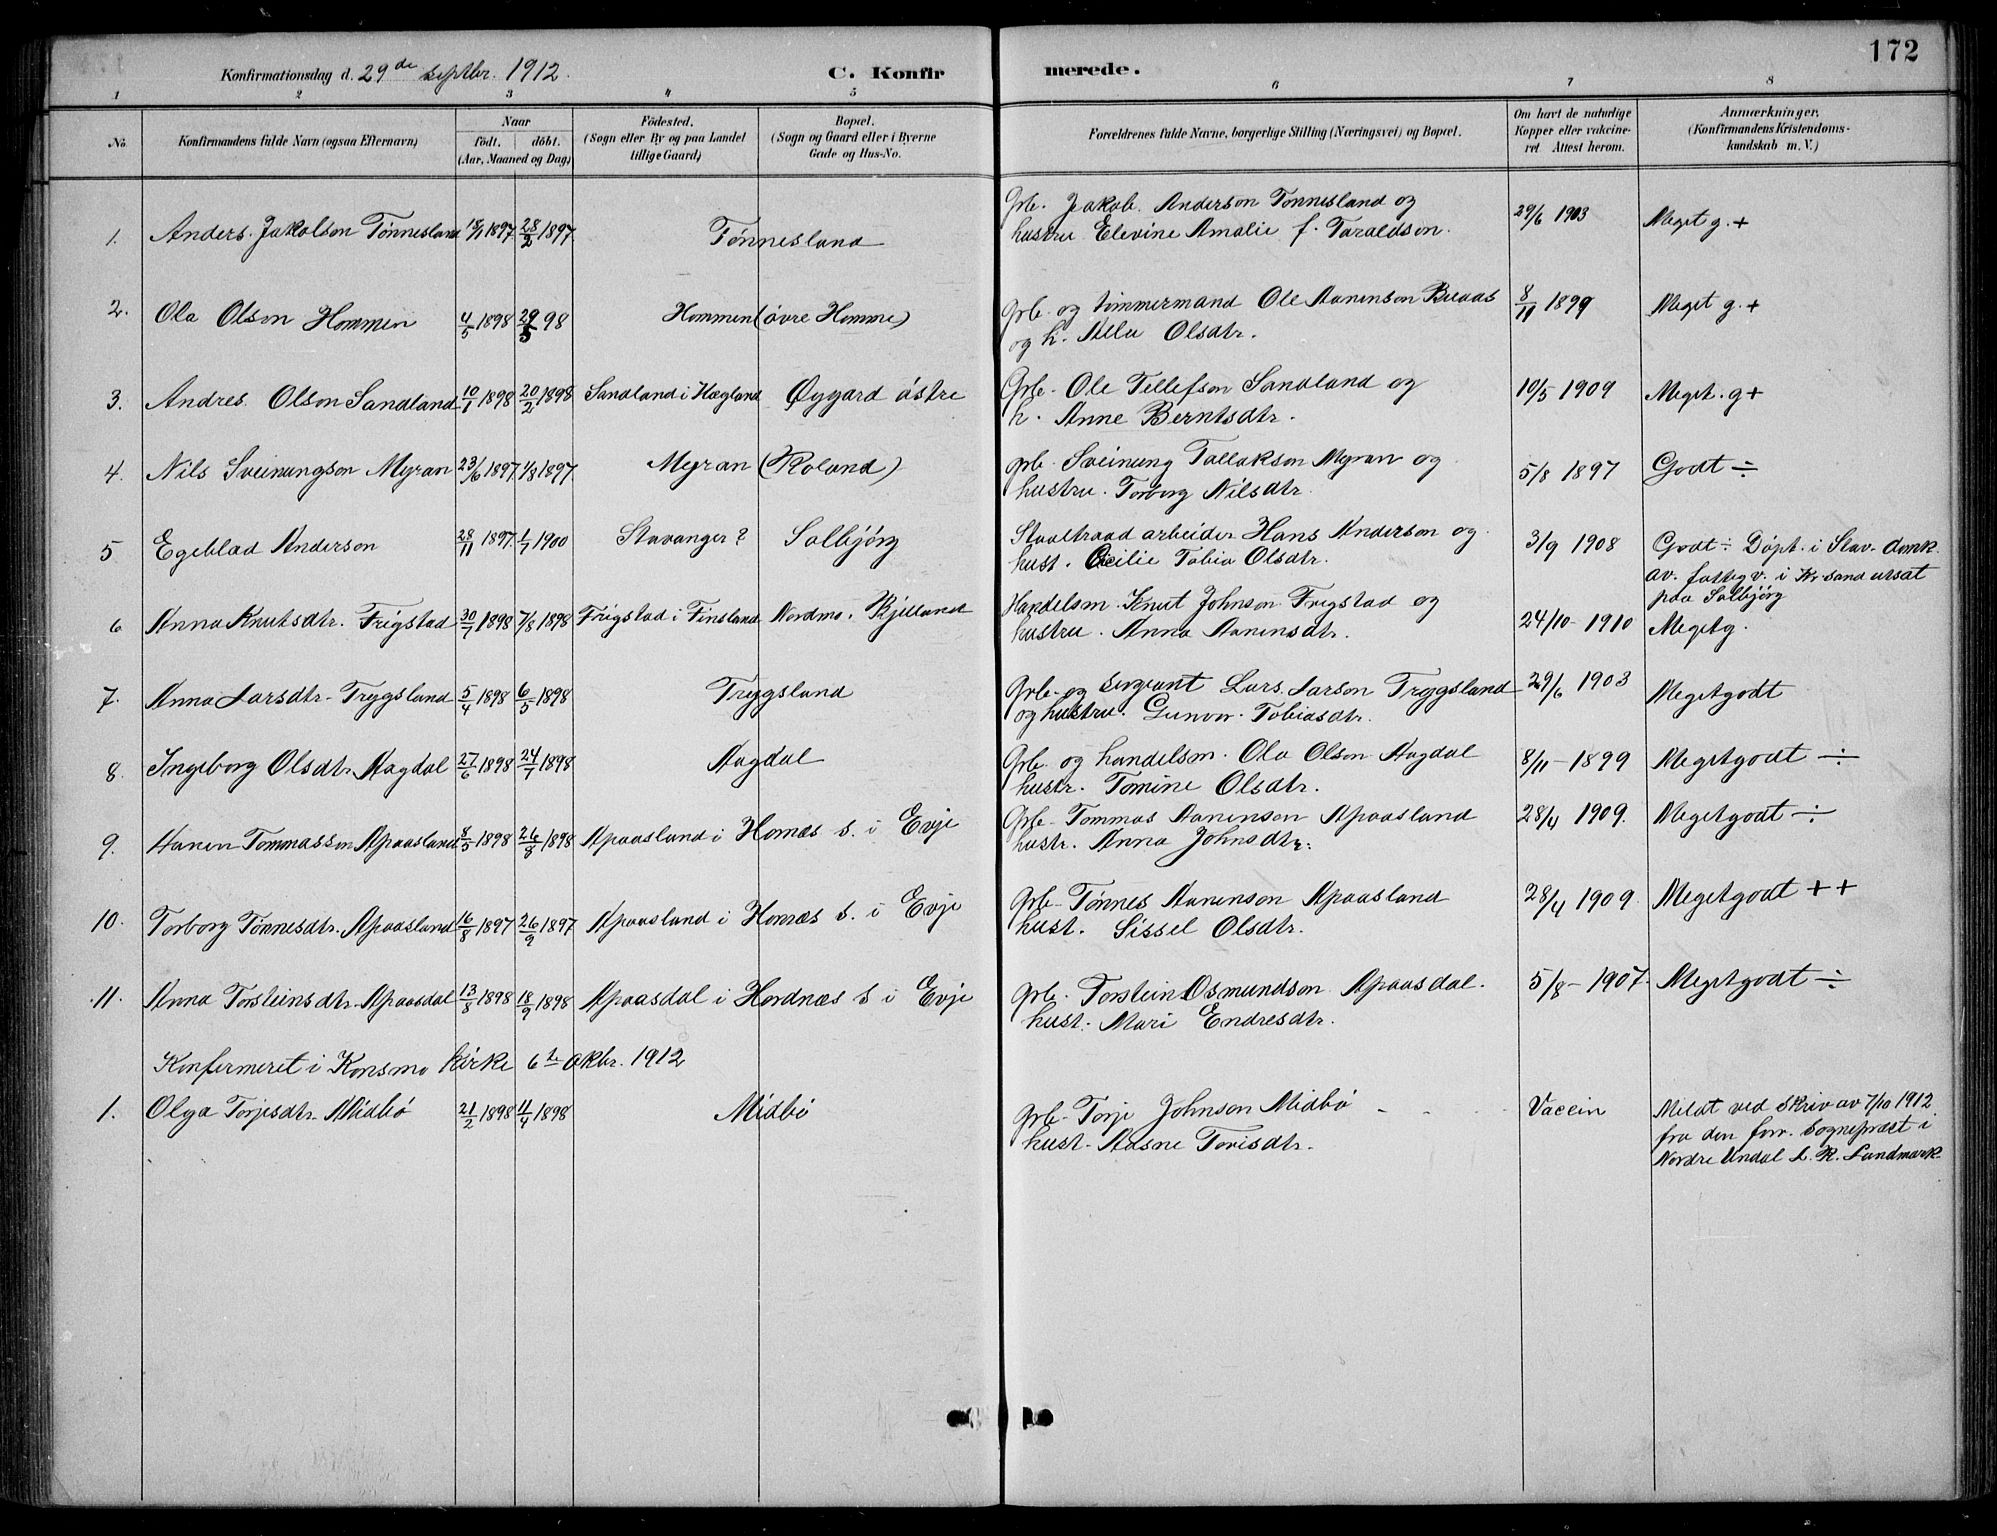 172
Konfirmationsdag d. 29de septbr. 1912. C. Konfirmerede.
1 2 3 4 5 6 7 8
No. Konfirmandens fulde Navn (ogsaa Efternavn) Naar født. døbt. (Aar, Maaned og Dag) Fødested. (Sogn eller By og paa Landet tillige Gaard) Bopæl. (Sogn og Gaard eller i Byerne Gade og Hus-No. Forældrenes fulde Navne, borgerlige Stilling (Næringsvei) og Bopæl. Om havt de naturlige Kopper eller vakcineret Attest herom. Anmærkninger. (Konfirmandens Kristendomskundskab m. V.)
1. Anders Jakobson Tønnesland 1897 28/2 1897 Tønnesland Grb. Jakob Anderson Tønnesland og 29/6 1903 Meget g. +
hustru Elevine Amalie f. Taraldson.
2. Ola Olson Hommen 4/5 1898 29/5 98 Hommen (øvre Homme) Grb. og timmermand Ole Aanenson 8/11 1899 Meget g. +
og h. Olsdtr.
3. Andres Olson Sandland 10/1 1898 20/2 1898 Sandland i Hægland Øygard østre Grb. Ole Tellefson Sandland og 10/5 1909 Meget. g +
h. Anne Berntsdtr.
4. Nils Sveinungson Myran 23/6 1897 1/8 1897 Myran (Roland) Grb. Sveinung Tallakson Myran og 5/8 1897 Godt ÷
hustru. Torborg Nilsdtr.
5 Egeblad Anderson 28/11 1897. 1/7 1900 Stavanger? Solbjørg Staaltraad arbeider Hans Anderson og 3/9 1908 Godt ÷ Døpt. i Stav. domk.
hust. Cecilie Tobia Olsdtr. av. fattigv. i Kr.sand utsat
paa Solbjørg
6 Anna Knutsdtr. Frigstad 30/7 1898 7/8 1898 Frigstad i Finsland Nordmo. Bjelland Handelsm. Knut Johnson Frigstad og 24/10 - 1910 Megetg.
hustru. Anna Aanensdtr.
7. Anna Larsdtr. Trygsland 5/4 1898 6/5 1898 Trygsland Grb. og sergeant Lars Larson Trygsland 29/6 1903 Megetgodt
og hustru. Gunvor Tobiasdtr.
8. Ingeborg Olsdtr. Aagdal 27/6 1898 24/7 1898 Aagdal Grb. og handelsm. Ola Olson Aagdal 8/11 - 1899 Megetgodt ÷
hustr. Tomine Olsdtr.
9. Aanen Tommasson Apaasland 8/5 1898 26/8 1898 Apaasland i Hornæs s. i Evje Grb. Tommas Aanenson Apaasland 28/4 1909. Megetgodt ÷
hustr. Anna Johnsdtr.
10. Torborg Tønnesdtr. Apaasland 16/8 1897 26/9 1897 Apaasland i Hornæs s. i Evje Grb. Tønnes Aanenson Apaasland 28/4 1909. Megetgodt + +
hust. Sissel Olsdtr.
11. Anna Torsteinsdtr. Apaasdal 13/8 1898 18/9 1898 Apaasdal i Hordnæs s i Evje Grb. Torstein Osmundson Apaasdal. 5/8 - 1907. Megetgodt ÷
hust. Mari Endresdtr.
Konfermeret i Konsmo kirke 6te oktbr. 1912
1. Olga Torjesdtr. Midbø 21/2 1898 11/4 1898 Midbø Grb. Torje Johnson Midbø Vaccin Meldt ved skriv av 7/10 1912
hust. Aasne Tovisdtr. fra den forr. Sogneprest i
Nordre Undal L. R. Landmark.